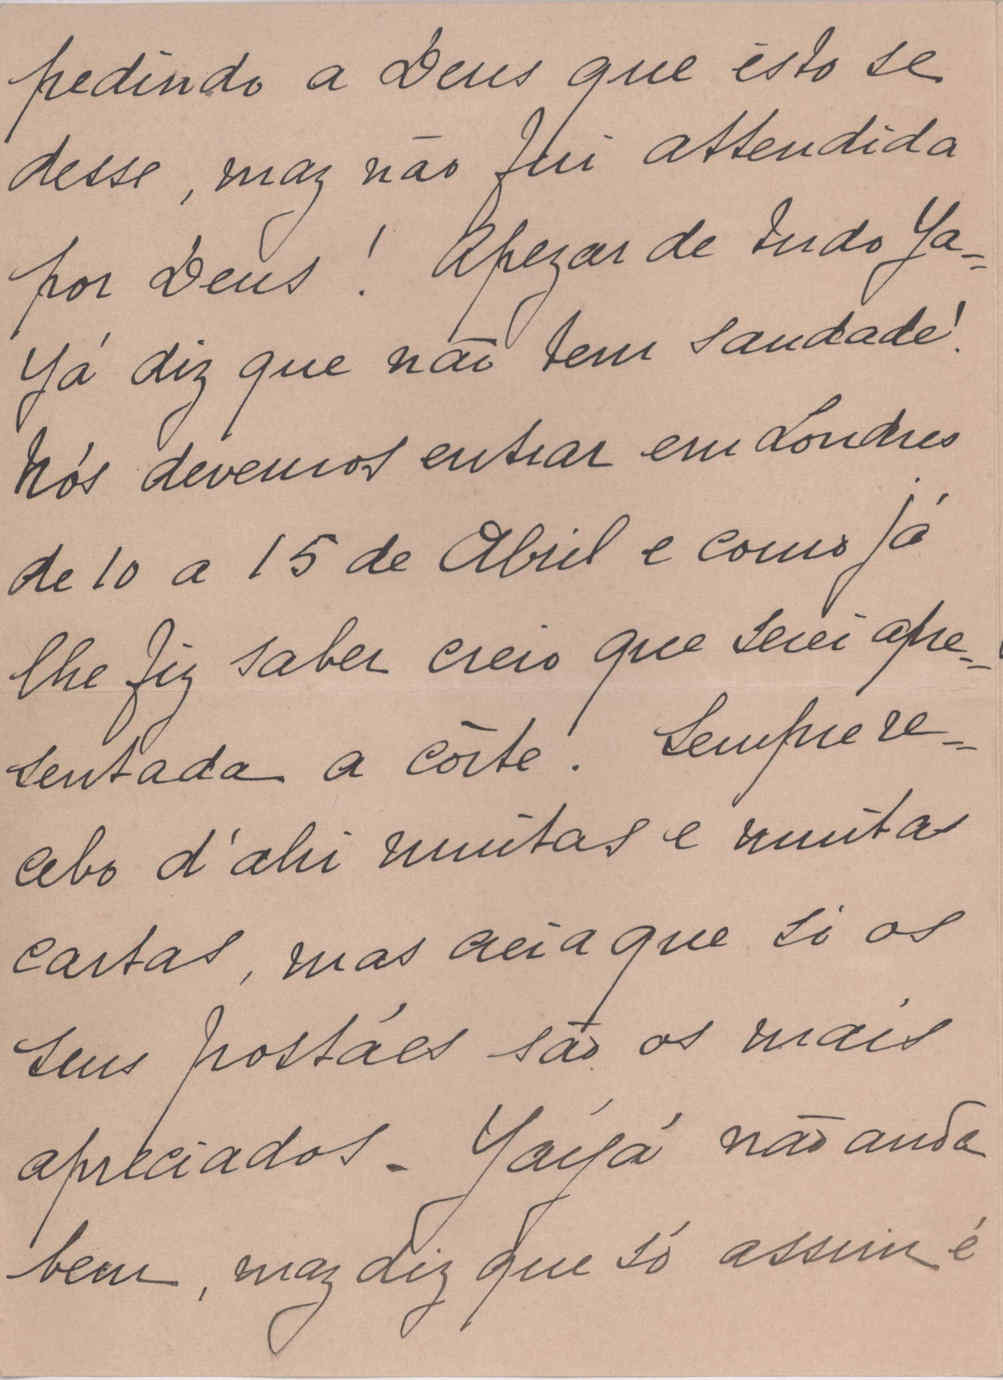 pedindo a Deus que isto se
desse, maz não fui attendida
por Deus! Apezar de tudo Ya=
Yá diz que não tem saudade!
Nós devemos entrar em Londres
de 10 a 15 de Abril e como já
lhe fiz saber creio que serei apre=
sentada a côrte. Sempre re=
cebo d'ahi muitas e muitas
cartas, mas creia que si os
seus postáes são os mais
apreciados. Yayá não anda
bem, maz diz que só assim é